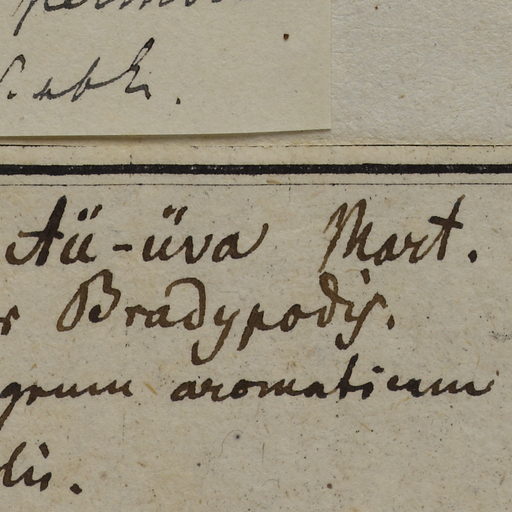 Aü-üva Mart.
r Bradypodis.
grum aromaticum
lis.